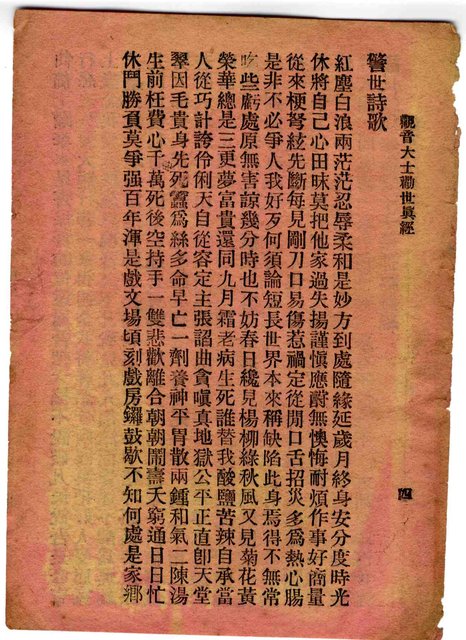 觀音大士勸世眞經
四
警世詩歌
紅塵白浪兩茫茫忍辱柔和是妙方到處隨緣延歲月終身安分度時光
休將自己心田昧莫把他家過失揚謹愼應酹無懊悔耐煩作事好商量
從來梗弩絃先斷每見剛刀口易傷惹禍定從閒口舌招災多爲熱心腸
是非不必爭人我好歹何須論短長世界本來稱缺陷此身焉得不無常
吃些虧處原無害諒幾分時也不妨春日纔見楊柳綠秋風又見菊花黃
榮華總是三更夢富貴還同九月霜老病生死誰替我酸鹽苦辣自承當
人從巧計誇伶俐天自從容定主張謟曲貪嗔真地獄公平正直卽天堂
翠因毛貴身先死蠶爲絲多命早亡一劑養神平胃散兩鍾和氣二陳湯
生前枉費心千萬死後空持手一雙悲歡離合朝朝鬧壽夭窮通日日忙
休鬥勝負莫爭强百年渾是戲文場頃刻戲房鑼鼓歇不知何處是家鄉